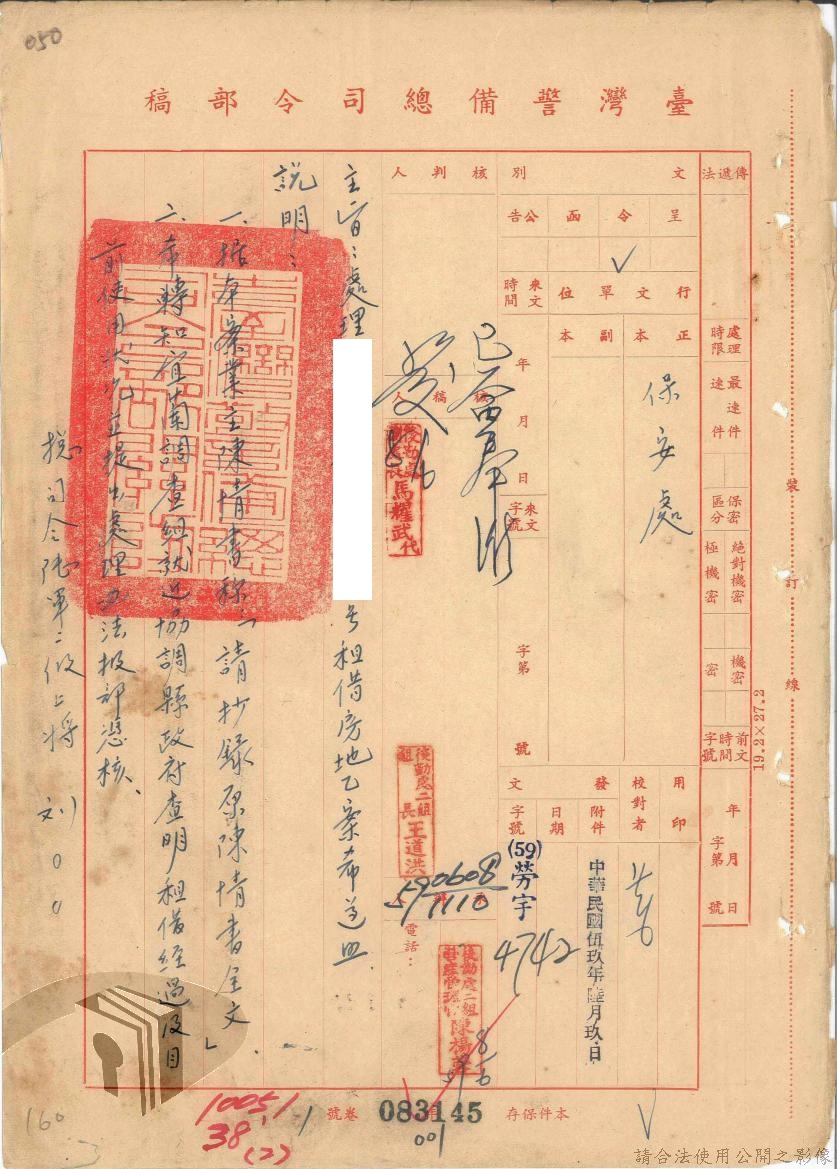 050
臺灣警備總司令部稿
傳遞法
處理時限
最速件
速件
保密區分
絕對機密
極機密
機密
密
前文時間字號
年月日
字第號
文別
呈
令
函
公告
✓
行文單位
正本
副本
保安處
來文時間
年月日
來文字號
字第號
用印
校對者
發文
附件
日期
字號
中華民國伍玖年陸月玖日
(59)勞字
4742
核判人
核稿人
後勤處
馬耀武代
後勤處二組組長王道洪
590608
1110
電話:
後勤處二組
主旨:處理
號租借房地乙案希遵照
說明:
一、據本案業主陳情書稱:請抄錄原陳情書全文」
二、希轉知宜蘭調查組就近協調縣政府查明租借經過及目
前使用狀況並提出處理辦法報部憑核、
總司令陸軍二級上將 劉〇〇
裝訂線
19.2×27.2
本件保存
083145
卷號
001
10051
38(2)
160
請合法使用公開之影像